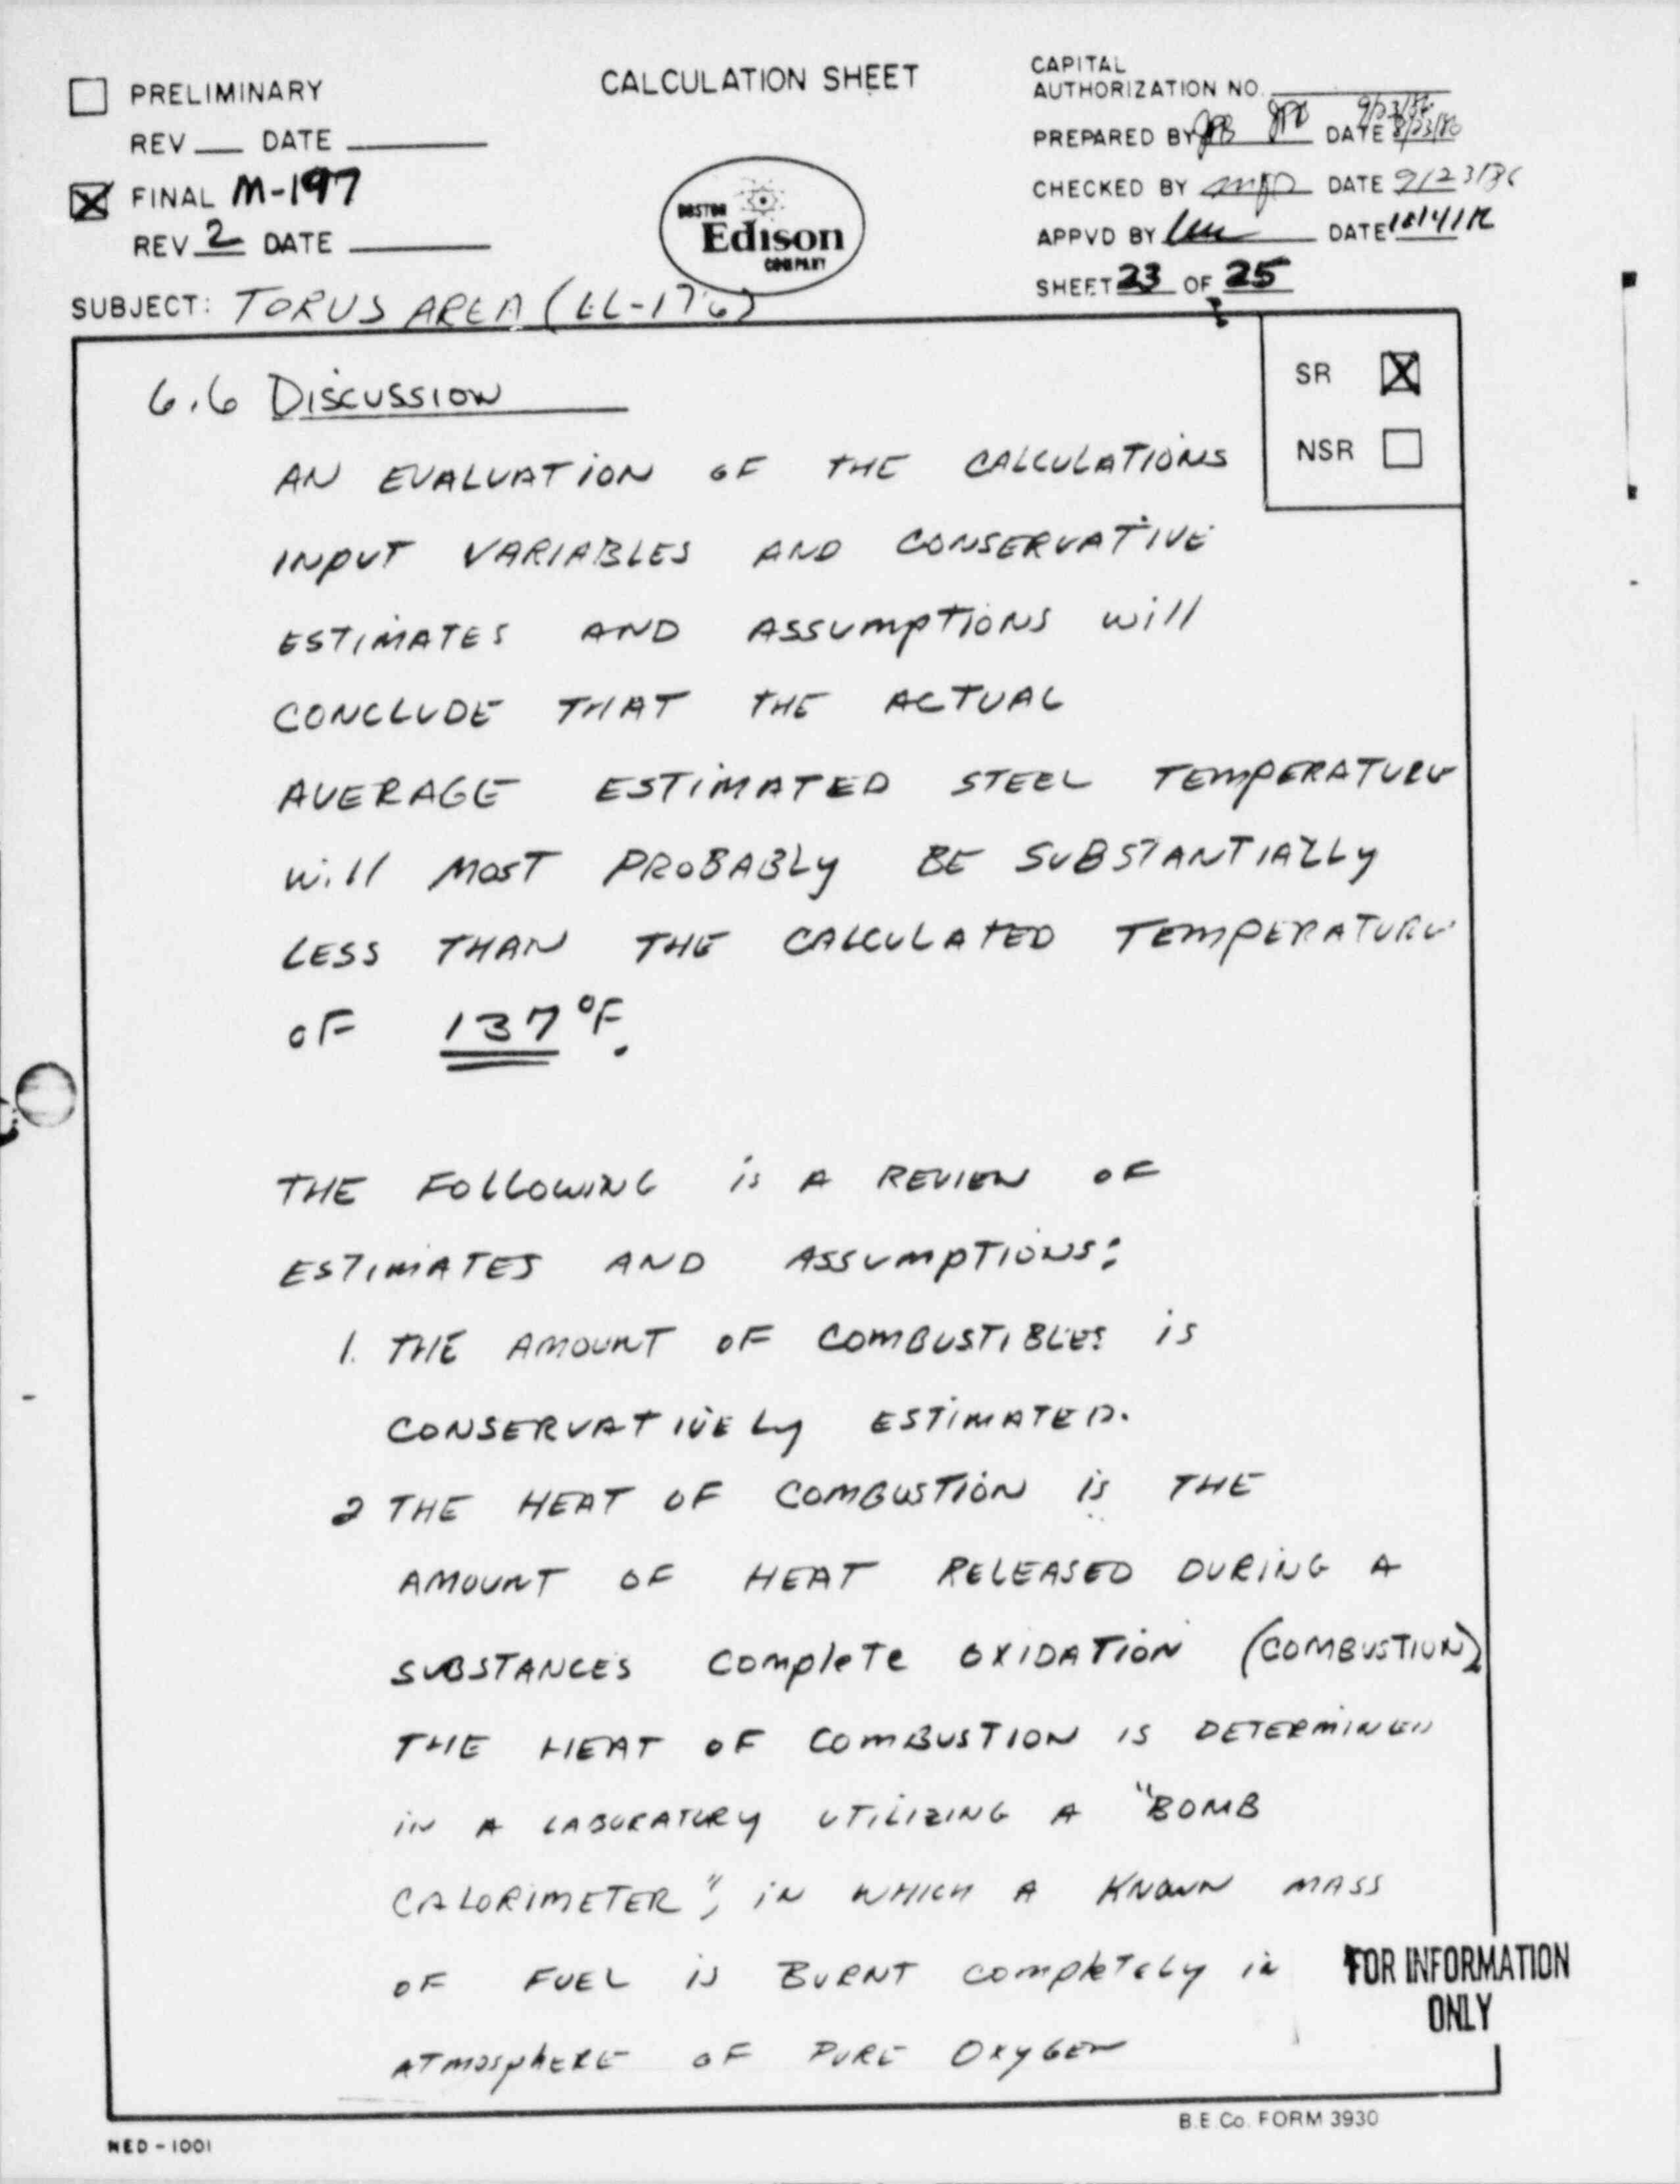 PRELIMINARY
REV DATE
FINAL M-197
REV 2 DATE
CALCULATION SHEET
BOSTON
Edison
COMPANY
CAPITAL
AUTHORIZATION NO.
PREPARED BY DATE 9/23/86 8/23/86
CHECKED BY DATE 9/23/86
APPVD BY DATE
SHEET 23 OF 25
SUBJECT: TORUS AREA (EL-17'6)
SR
NSR
6.6 DISCUSSION
AN EVALUATION OF THE CALCULATIONS
INPUT VARIABLES AND CONSERVATIVE
ESTIMATES AND ASSUMPTIONS will
CONCLUDE THAT THE ACTUAL
AVERAGE ESTIMATED STEEL TEMPERATURE
will MOST PROBABLY BE SUBSTANTIALLY
LESS THAN THE CALCULATED TEMPERATURE
OF 137°F.
THE FOLLOWING is A REVIEW OF
ESTIMATES AND ASSUMPTIONS:
1. THE AMOUNT OF COMBUSTIBLES is
CONSERVATIVELY ESTIMATED.
2 THE HEAT OF COMBUSTION is THE
AMOUNT OF HEAT RELEASED DURING A
SUBSTANCES COMPLETE OXIDATION (COMBUSTION)
THE HEAT OF COMBUSTION IS DETERMINED
in A LABORATORY UTILIZING A "BOMB
CALORIMETER", in WHICH A KNOWN MASS
OF FUEL is BURNT completely in
ATMOSPHERE OF PURE OXYGEN
FOR INFORMATION
ONLY
B.E.Co. FORM 3930
NED-1001